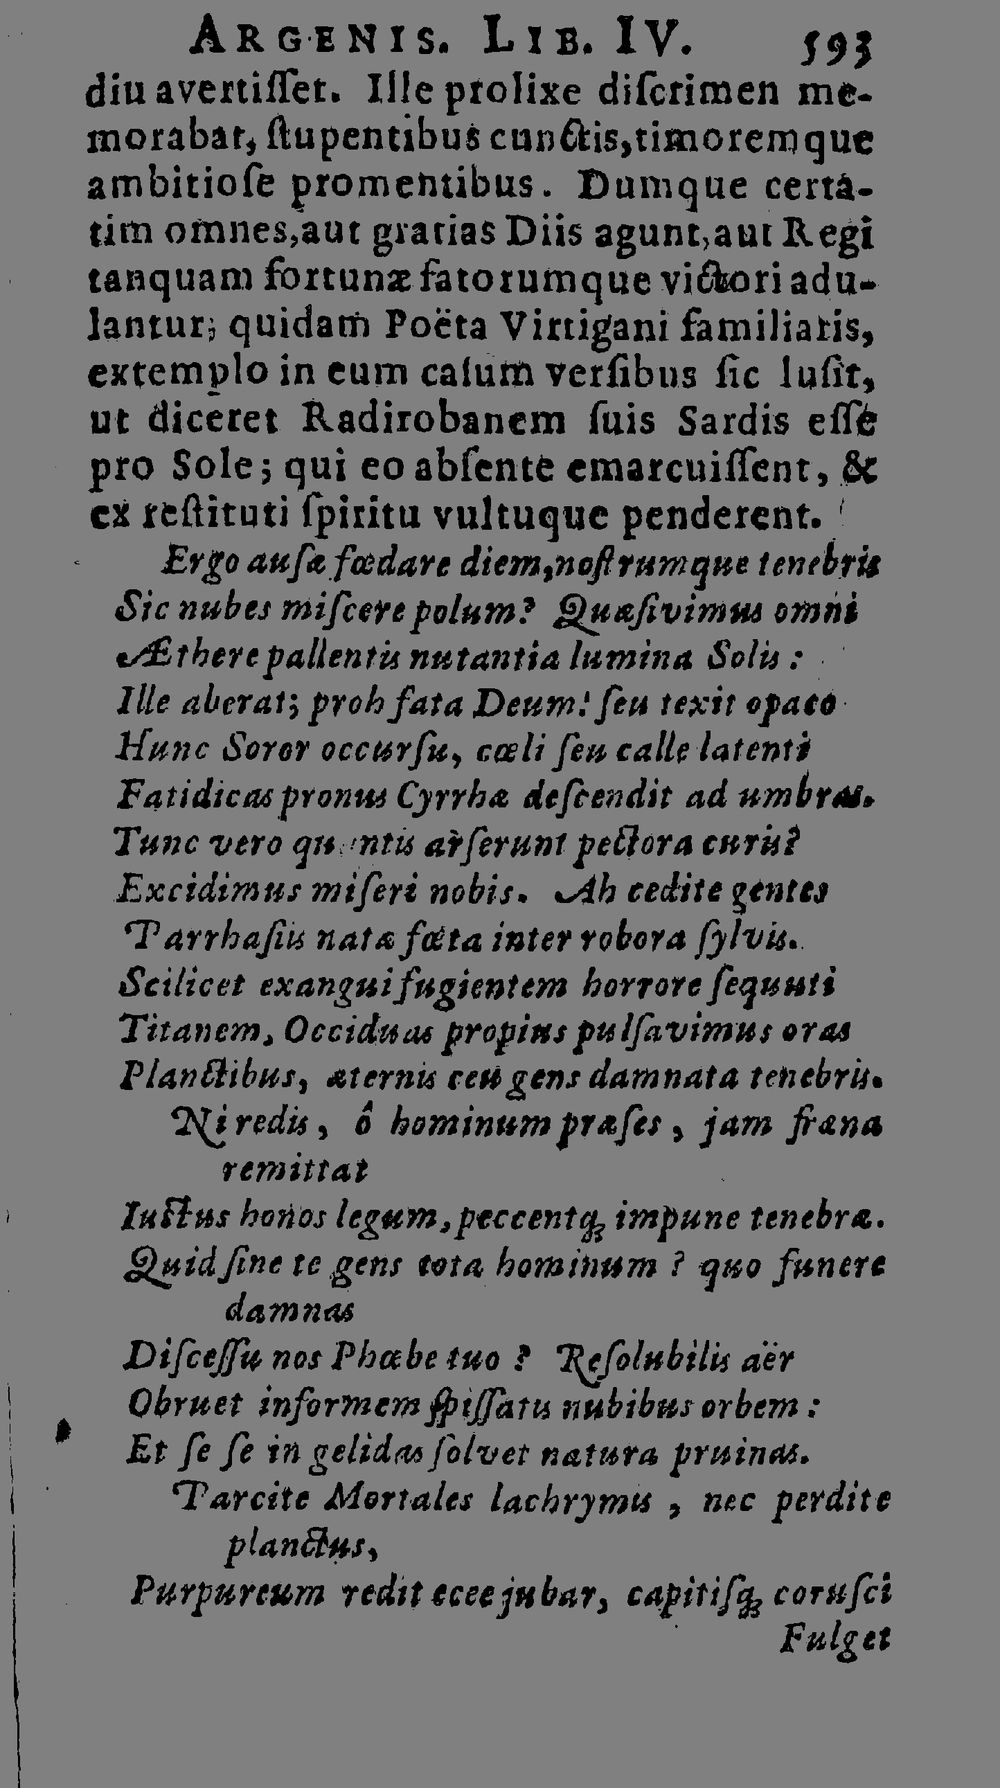 ARGENIS. LIB. IV. 593
diu avertiſſet. Ille prolixe diſcrimen me-
morabat, ſtupentibus cunctis, timoremque
ambitioſe promentibus. Dumque certa-
tim omnes, aut gratias Diis agunt, aut Regi
tanquam fortunæ fatorumque victori adu-
lantur; quidam Poëta Virtigani familiaris,
extemplo in eum caſum verſibus ſic luſit,
ut diceret Radirobanem ſuis Sardis eſſe
pro Sole; qui eo abſente emarcuiſſent, &
ex reſtituti ſpiritu vultuque penderent.
Ergo auſæ fœdare diem, noſtrumque tenebris
Sic nubes miſcere polum? Quæſivimus omni
Æthere pallentis nutantia lumina Solis:
Ille aberat; proh fata Deum! ſeu texit opaco
Hunc Soror occurſu, cœli ſeu calle latenti
Fatidicas pronus Cyrrhæ deſcendit ad umbras.
Tunc vero quantis arſerunt pectora curis?
Excidimus miſeri nobis. Ah cedite gentes
Tarrhaſiis natæ fœta inter robora ſylvis.
Scilicet exangui fugientem horrore ſequuti
Titanem, Occiduas propius pulſavimus oras
Planctibus, æternis ceu gens damnata tenebris.
Ni redis, ô hominum præſes, jam fræna
remittat
Iuctus honos legum, peccentq; impune tenebræ.
Quid ſine te gens tota hominum? quo funere
damnas
Diſceſſu nos Phœbe tuo? Reſolubilis aër
Obruet informem ſpiſſatis nubibus orbem:
Et ſe ſe in gelidas ſolvet natura pruinas.
Tarcite Mortales lachrymis, nec perdite
planctus,
Purpureum redit ecee jubar, capitiſq; coruſci
Fulget